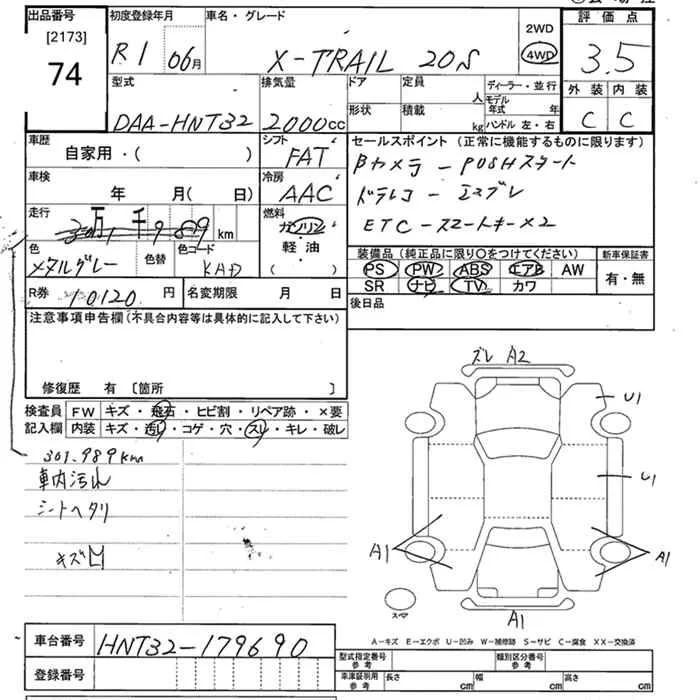 出品番号 初度登録年月 車名・グレード
[2173]
74
R1 06月 X-TRAIL 20S
2WD
4WD
評価点
3.5
外装 内装
C C
型式 排気量 ドア 定員 人 ディーラー・並行
DAA-HNT32 2000cc
形状 積載 kg モデル年式 年
ハンドル 左・右
車歴 シフト
自家用・( ) FAT
セールスポイント (正常に機能するものに限ります)
Bカメラ - PUSHスタート
ドラレコ - エマブレ
ETC - スマートキー×2
車検 冷房
年 月( 日) AAC
走行 万 千 km 燃料
ガソリン
軽油
( )
色 色替 色コード
メタルグレー KAD
装備品 (純正品に限り○をつけてください) 新車保証書
PS PW ABS エアB AW 有・無
SR ナビ TV カワ
R券 10120円 名変期限 月 日
後日品
注意事項申告欄 (不具合内容等は具体的に記入して下さい)
修復歴 有 [箇所 ]
検査員 FW キズ・飛石・ヒビ割・リペア跡・×要
記入欄 内装 キズ・汚れ・コゲ・穴・スレ・キレ・破レ
301,989km
車内汚れ
シートヘタリ
キズ凹
ズレ A2
U1
U1
A1 A1
スペア
A1
A-キズ E-エクボ U-凹み W-補修跡 S-サビ C-腐食 XX-交換済
車台番号 HNT32-179690
登録番号
型式指定番号 参考 類別区分番号 参考
車庫証明用 参考 長さ cm 幅 cm 高さ cm